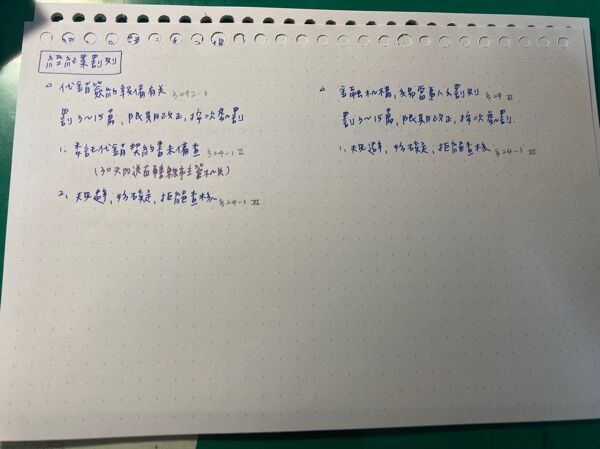 經紀業罰則
△ 代銷簽約報備有關 §29I.3
罰 3~15萬，限期改正，按次處罰
1. 委託代銷契約書未備查 §24-1 II
（30天內送直轄縣市主管機關）
2. 規避、妨礙、拒絕查核 §24-1 VI
△ 金融機構，交易當事人之罰則 §29 III
罰 3~15萬，限期改正，按次處罰．
1. 規避、妨礙，拒絕查核 §24-1 VI